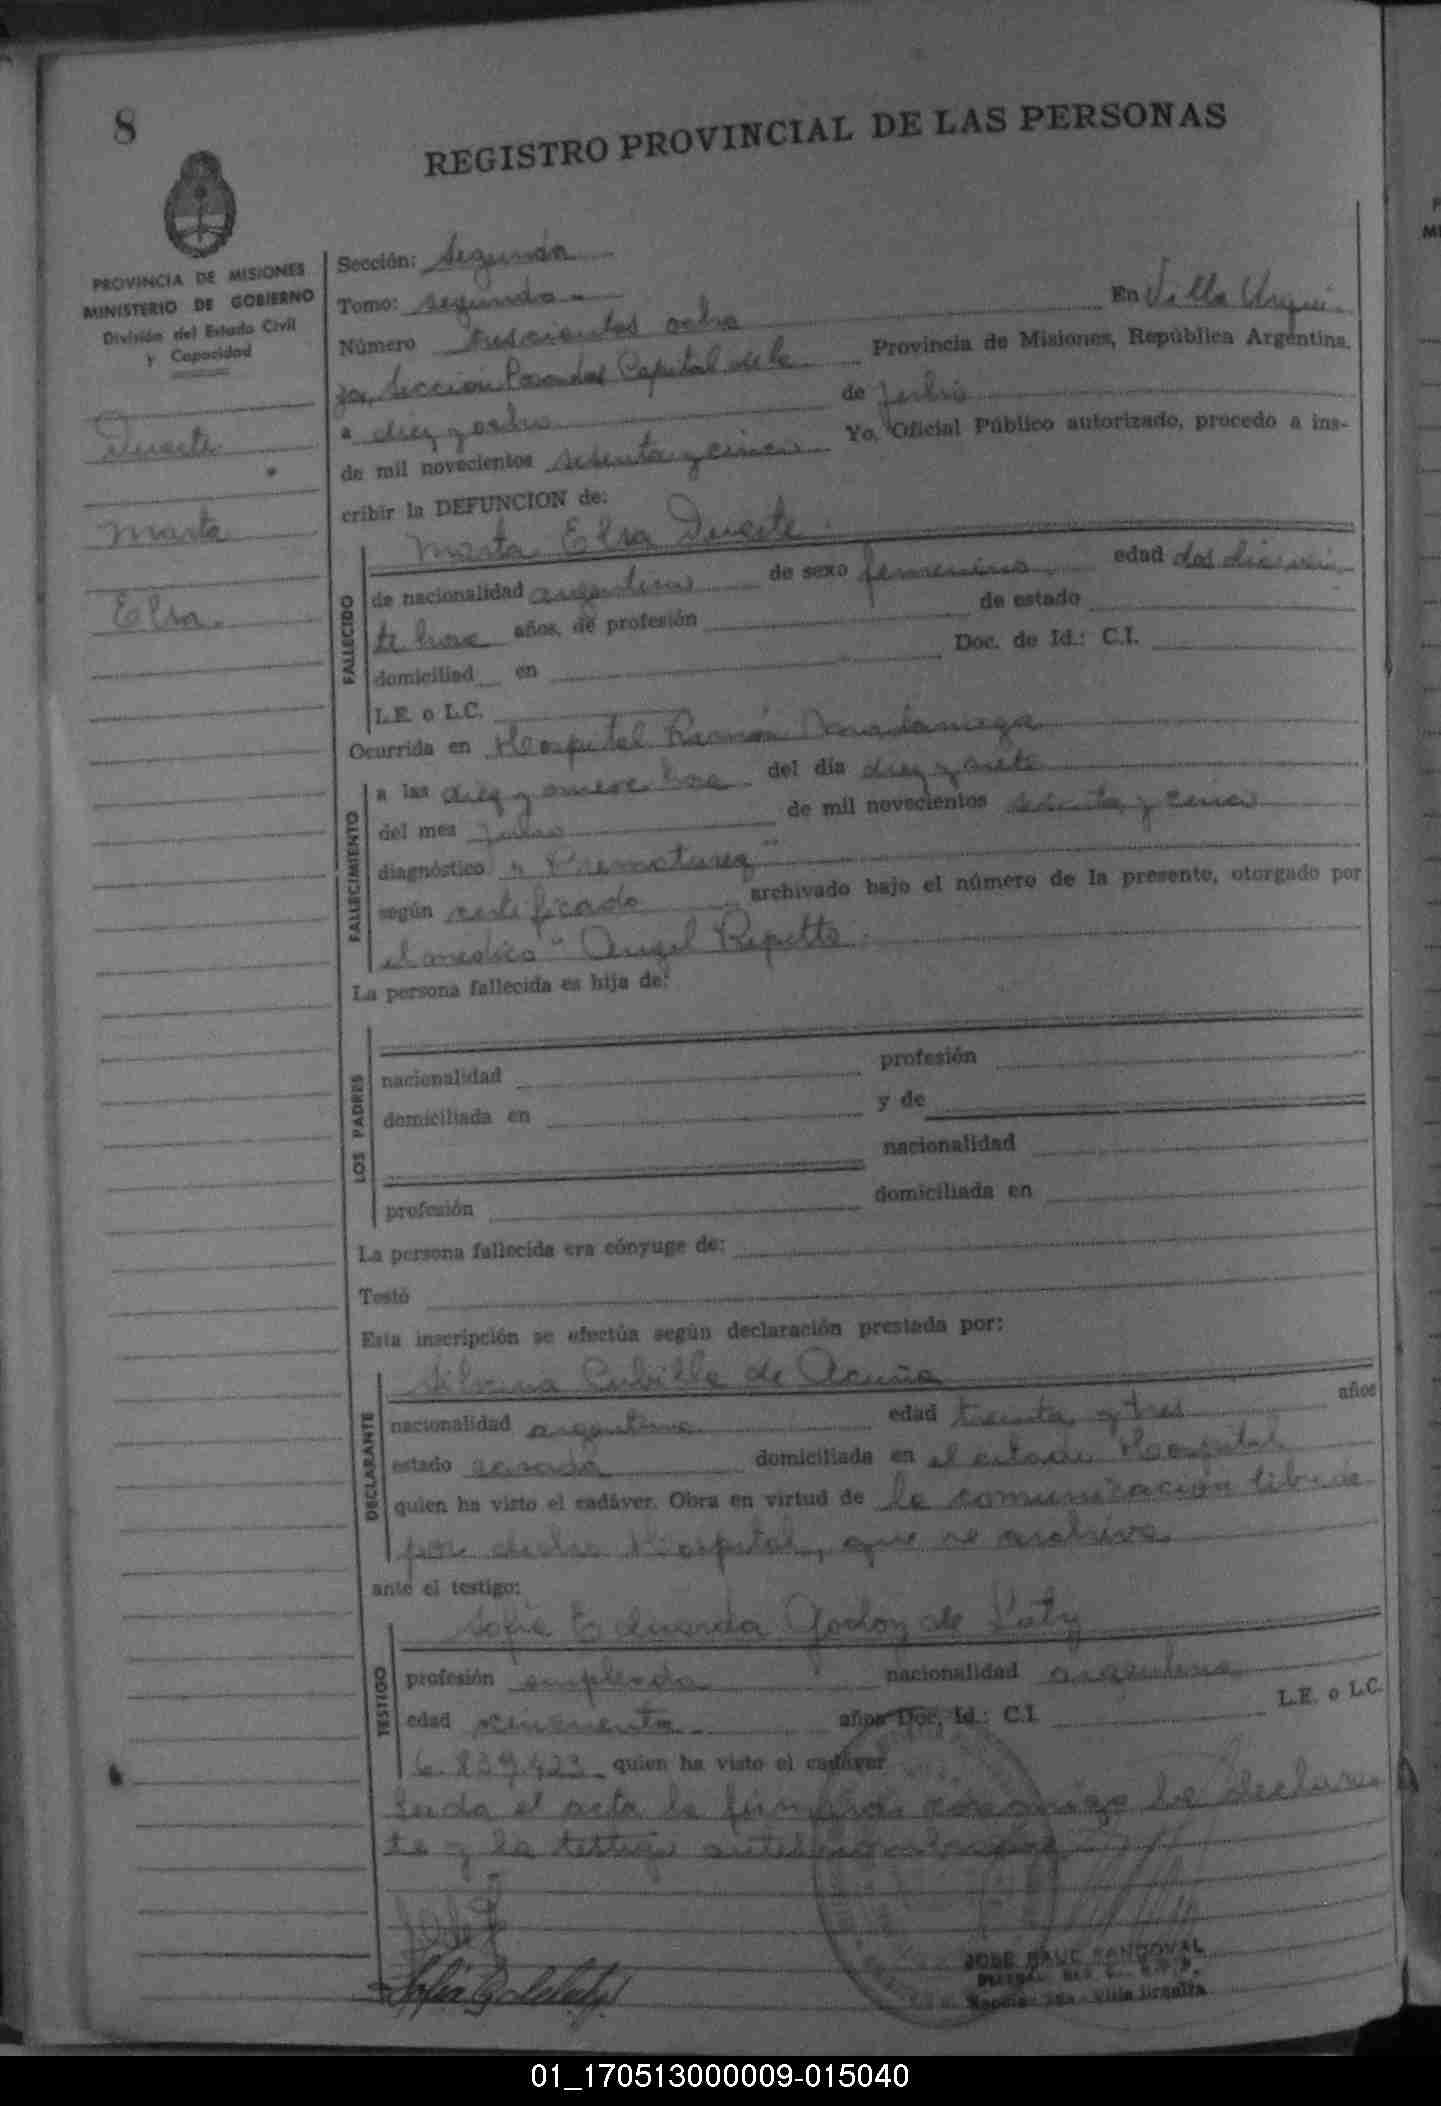 8
REGISTRO PROVINCIAL DE LAS PERSONAS
PROVINCIA DE MISIONES
MINISTERIO DE GOBIERNO
División del Estado Civil
y Capacidad
Duarte
Marta
Elsa.
Sección: Segunda
Tomo: segundo
Número trescientos ocho En Villa Urqui-
za, Sección Posadas Capital de la Provincia de Misiones, República Argentina,
a diez y ocho de Julio
de mil novecientos setenta y cinco Yo, Oficial Público autorizado, procedo a ins-
cribir la DEFUNCION de:
Marta Elsa Duarte
FALLECIDO
de nacionalidad argentina de sexo femenino edad dos dias vein
te hora años, de profesión de estado
domiciliad en Doc. de Id.: C.I.
L.E. o L.C.
Ocurrida en Hospital Ramón Madariaga
FALLECIMIENTO
a las diez y nueve hora del día diez y siete
del mes Julio de mil novecientos setenta y cinco
diagnóstico "Prematurez"
según certificado archivado bajo el número de la presente, otorgado por
el medico "Angel Repetto
La persona fallecida es hija de:
LOS PADRES
nacionalidad profesión
domiciliada en y de
nacionalidad
profesión domiciliada en
La persona fallecida era cónyuge de:
Testó
Esta inscripción se efectúa según declaración prestada por:
Silvina Cubilla de Acuña
DECLARANTE
nacionalidad argentina edad treinta y tres años
estado casada domiciliada en el citado Hospital
quien ha visto el cadáver. Obra en virtud de la comunicación librada
por dicho Hospital, que se archiva
ante el testigo:
Sofia Eduarda Godoy de
TESTIGO
profesión empleada nacionalidad argentina
edad cincuenta años Doc. Id.: C.I. L.E. o L.C.
6.839.423 quien ha visto el cadáver
Leida el acta la firman conmigo la declaran
te y la testigo
JOSE RAUL SANDOVAL
Villa Urquiza
01_170513000009-015040